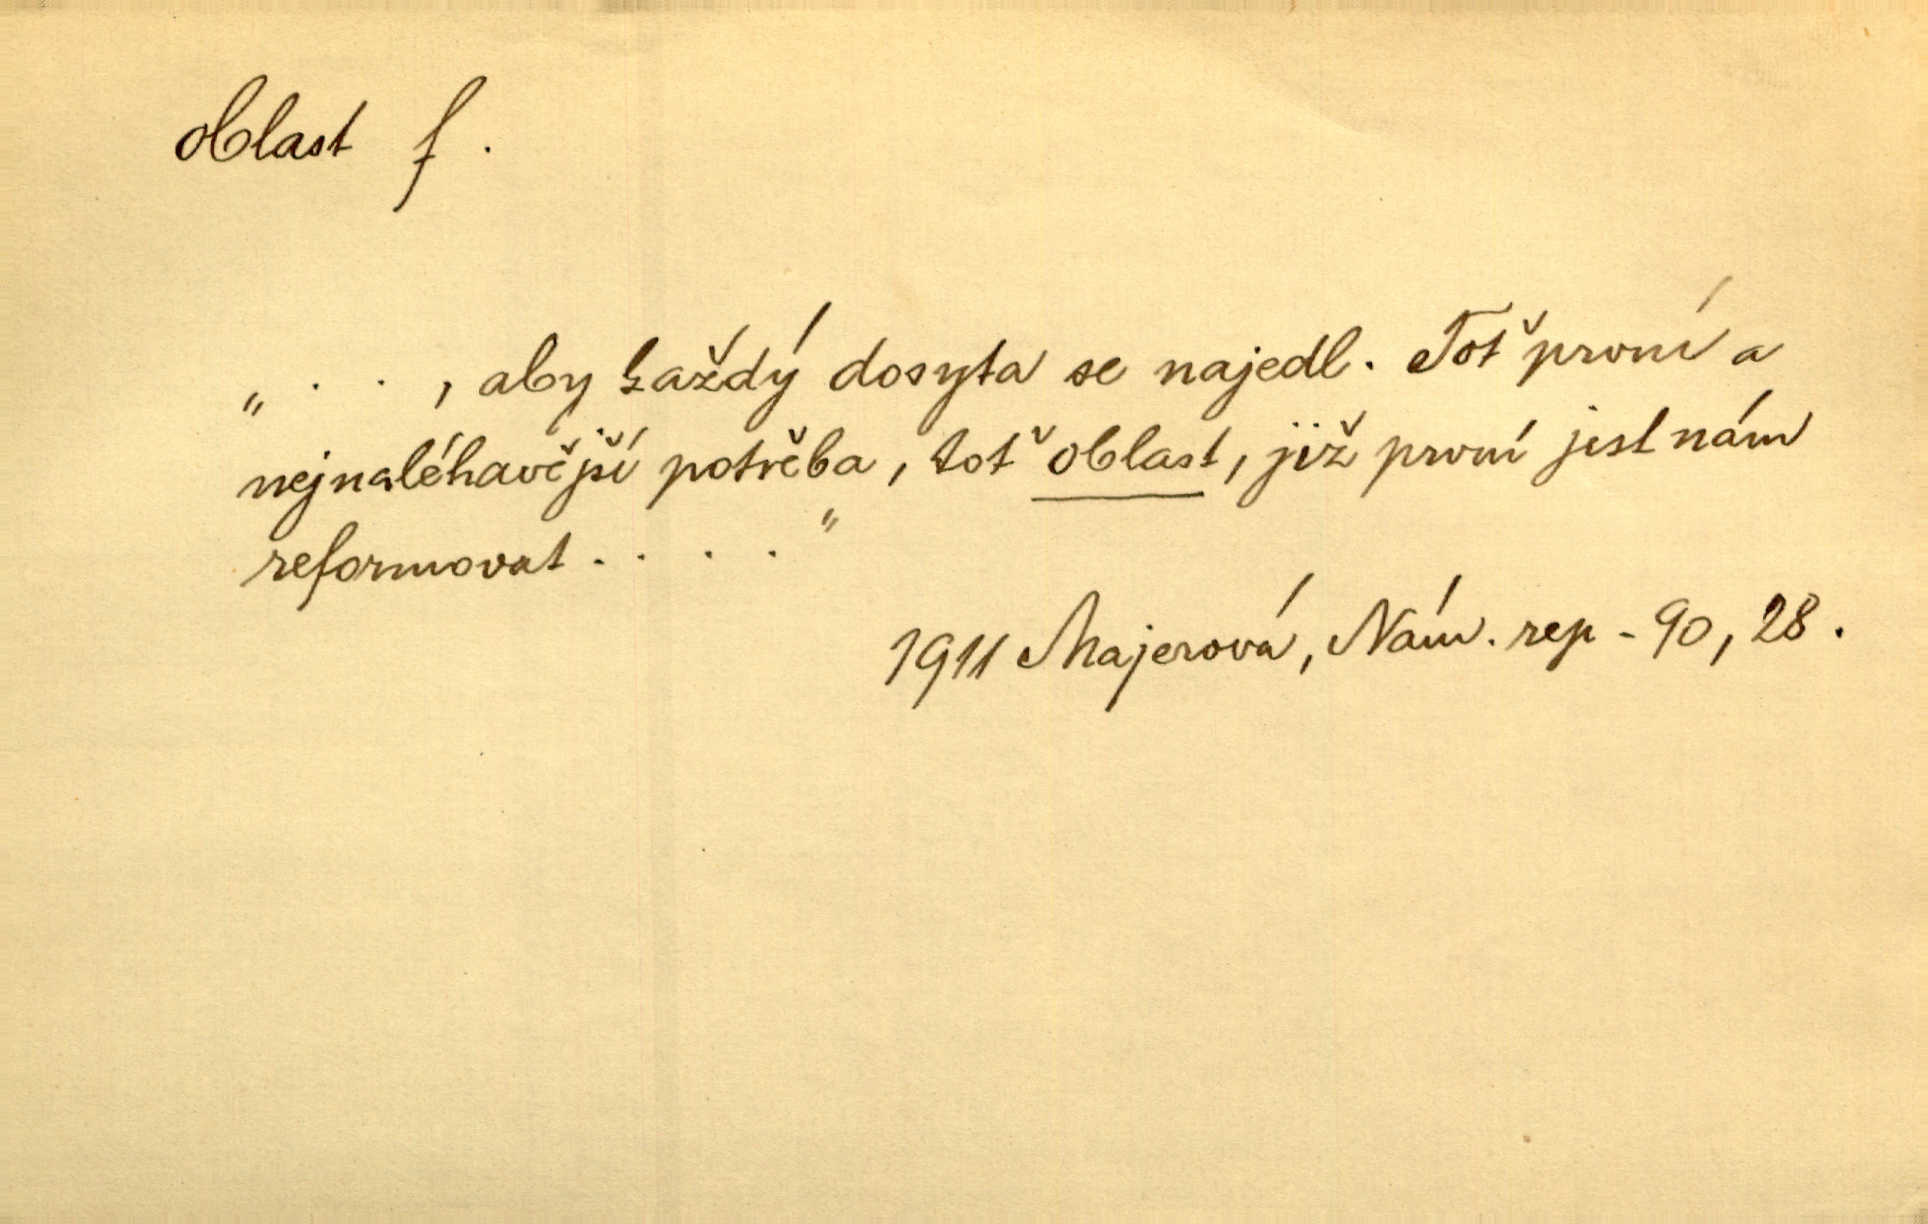 oblast f.
„ . . , aby každý dosyta se najedl. Toť první a
nejnaléhavější potřeba, toť oblast, již první jest nám
reformovat . . . . "
1911 Majerová, Nám. rep - 90, 28.